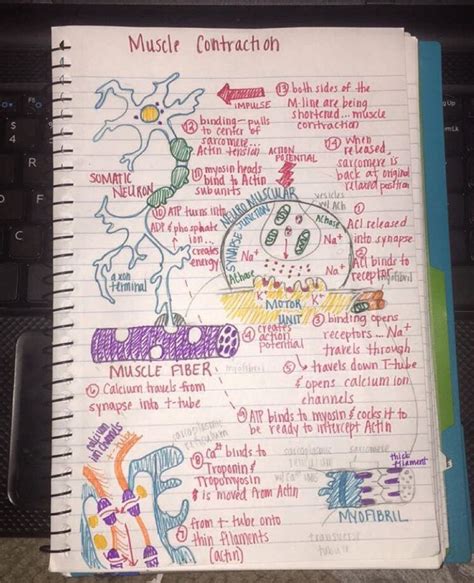 Muscle Contraction
IMPULSE
⑬ both sides of the
M-line are being
shortened... muscle
contraction
⑫ binding-pulls
to center of
sarcomere...
Actin tension
ACTION
POTENTIAL
⑭ When
released,
sarcomere is
back at original
relaxed position
SOMATIC
NEURON
⑪ myosin heads
bind to Actin
subunits
⑩ ATP turns into
ADP & phosphate
ion...
creates
energy
NEUROMUSCULAR
SYNAPSE JUNCTION
vesicles
w/ ACh
AChase
Na+
Na+
AChase
K+
K+
MOTOR
UNIT
① ACl released
into synapse
② ACl binds to
receptor
myofibril
axon
terminal
③ binding opens
receptors... Na+
travels through
④ creates
action
potential
MUSCLE FIBER
myofibril
⑤ travels down T-tube
& opens calcium ion
channels
⑥ Calcium travels from
synapse into t-tube
⑨ ATP binds to myosin & cocks it to
be ready to intercept Actin
calcium
ion channels
t-tube
sarcoplasmic
reticulum
⑧ Ca2+ binds to
Troponin &
Tropomyosin
& is moved from Actin
sarcoplasmic
sarcomere
thick
filament
MYOFIBRIL
⑦ from t-tube onto
thin filaments
(actin)
transverse